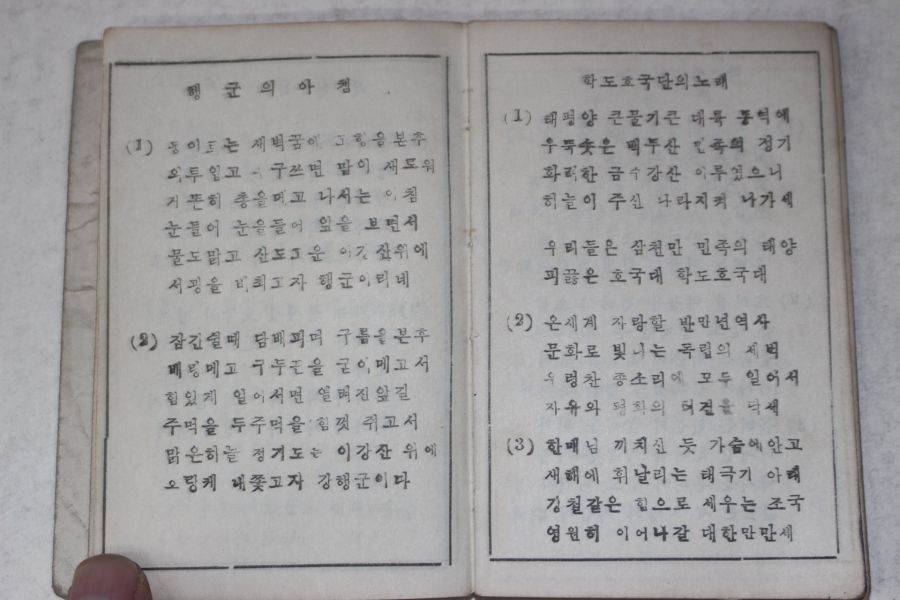 행 군 의 아 침
(1) 동이트는 새벽꿈에 고향을본후
외투입고 구쓰면 맘이 새로워
거뜬히 총을메고 나서는 아침
눈들어 눈을들어 앞을 보면서
물도맑고 산도고운 이강산위에
서광을 비최고자 행군이라네
(2) 잠간쉴때 담배피며 구름을본후
배랑메고 구두끈을 굳이메고서
힘있게 일어서면 열려진앞길
주먹을 두주먹을 힘껏 쥐고서
맑은하늘 정기도는 이강산 위에
오랑케 내쫓고자 강행군이다
학도호국단의노래
(1) 태평양 큰물기큰 대륙 동역에
우뚝솟은 백두산 민족의 정기
화려한 금수강산 이루었으니
하늘이 주신 나라지켜 나가세
우리들은 삼천만 민족의 태양
피끓은 호국대 학도호국대
(2) 온세계 자랑할 반만년역사
문화로 빛나는 독립의 새벽
우렁찬 종소리에 모두 일어서
자유와 평화의 허전을 닥세
(3) 한배님 끼치신 듯 가슴에안고
새해에 휘날리는 태극기 아래
강철같은 힘으로 세우는 조국
영원히 이어나갈 대한만만세